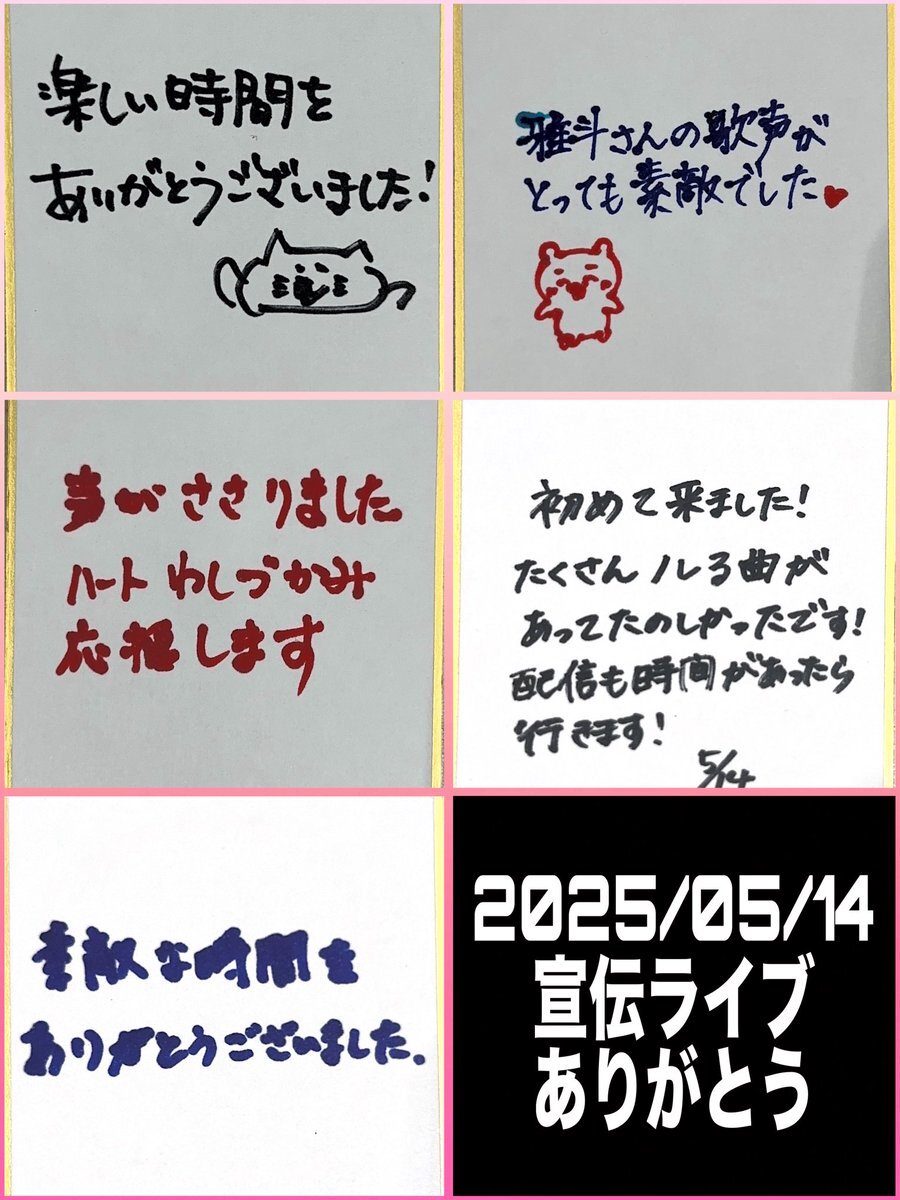 楽しい時間を
ありがとうございました!
雅斗さんの歌声が
とっても素敵でした♥
声がささりました
ハートわしづかみ
応援します
初めて来ました!
たくさんノレる曲が
あってたのしかったです!
配信も時間があったら
行きます!
5/14
素敵な時間を
ありがとうございました。
2025/05/14
宣伝ライブ
ありがとう